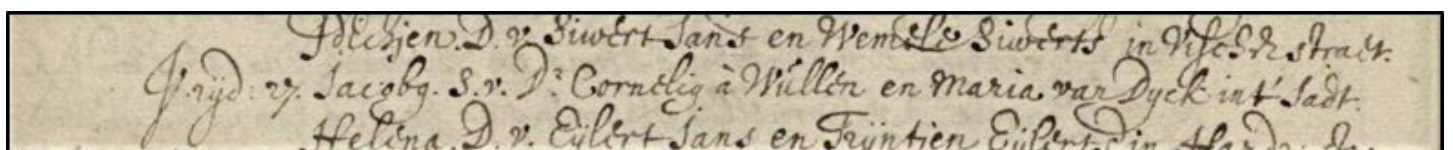 Idechjen. D. v. Siwert Jans en Wemele Siwerts in Visscher straet.
Vrijd: 27. Jacobg. S. v. Dr. Cornelig à Wullen en Maria van Dyck in t' Jadt.
Helena. D. v. Eylert Jans en Trijntien Eylerts in